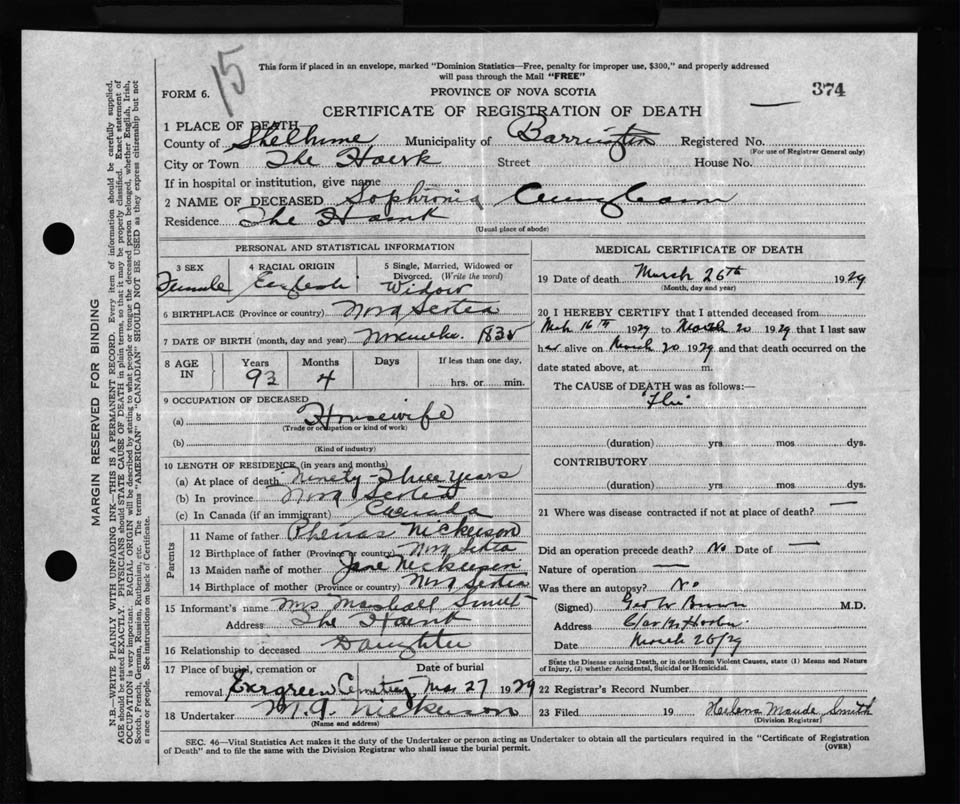 15
This form if placed in an envelope, marked "Dominion Statistics—Free, penalty for improper use, $300," and properly addressed
will pass through the Mail "FREE"
FORM 6.
PROVINCE OF NOVA SCOTIA
374
CERTIFICATE OF REGISTRATION OF DEATH
1 PLACE OF DEATH
County of Shelburne Municipality of Barrington Registered No.
(For use of Registrar General only)
City or Town The Hawk Street House No.
If in hospital or institution, give name
2 NAME OF DECEASED Sophronia
Residence The Hawk
(Usual place of abode)
PERSONAL AND STATISTICAL INFORMATION
3 SEX 4 RACIAL ORIGIN 5 Single, Married, Widowed or Divorced. (Write the word)
Female English Widow
6 BIRTHPLACE (Province or country) Nova Scotia
7 DATE OF BIRTH (month, day and year) 1835
8 AGE IN Years Months Days If less than one day,
93 4 hrs. or min.
9 OCCUPATION OF DECEASED
(a) Housewife
(Trade or occupation or kind of work)
(b)
(Kind of industry)
10 LENGTH OF RESIDENCE (in years and months)
(a) At place of death Ninety Three Years
(b) In province Nova Scotia
(c) In Canada (if an immigrant) Canada
Parents
11 Name of father Nickerson
12 Birthplace of father (Province or country) Nova Scotia
13 Maiden name of mother Jane Nickerson
14 Birthplace of mother (Province or country) Nova Scotia
15 Informant's name Mrs Marshall
Address The Hawk
16 Relationship to deceased Daughter
17 Place of burial, cremation or Date of burial
removal Evergreen Cemetery Mar 27 1929
18 Undertaker Nickerson
(Name and address)
MEDICAL CERTIFICATE OF DEATH
19 Date of death March 26th 1929
(Month, day and year)
20 I HEREBY CERTIFY that I attended deceased from
Mch 16th 1929 to March 20 1929 that I last saw
her alive on March 20 1929 and that death occurred on the
date stated above, at m.
The CAUSE of DEATH was as follows:—
"Flu"
(duration) yrs mos dys.
CONTRIBUTORY
(duration) yrs mos dys.
21 Where was disease contracted if not at place of death? —
Did an operation precede death? No Date of —
Nature of operation —
Was there an autopsy? No
(Signed) Geo W Brown M.D.
Address Clarks Harbor
Date March 26/29
State the Disease causing Death, or in death from Violent Causes, state (1) Means and Nature
of Injury, (2) whether Accidental, Suicidal or Homicidal.
22 Registrar's Record Number
23 Filed 19 Maude Smith
(Division Registrar)
SEC. 46—Vital Statistics Act makes it the duty of the Undertaker or person acting as Undertaker to obtain all the particulars required in the "Certificate of Registration
of Death" and to file the same with the Division Registrar who shall issue the burial permit.
(OVER)
MARGIN RESERVED FOR BINDING
N.B.—WRITE PLAINLY WITH UNFADING INK—THIS IS A PERMANENT RECORD. Every item of information should be carefully supplied.
AGE should be stated EXACTLY. PHYSICIANS should STATE CAUSE OF DEATH in plain terms, so that it may be properly classified. Exact statement of
OCCUPATION is very important. RACIAL ORIGIN will be described by stating to what people or tongue the deceased person belonged, whether English, Irish,
Scotch, French, German, Russian, Ruthenian, etc. The terms "AMERICAN" or "CANADIAN" SHOULD NOT BE USED as they express citizenship but not
a race or people. See instructions on back of Certificate.